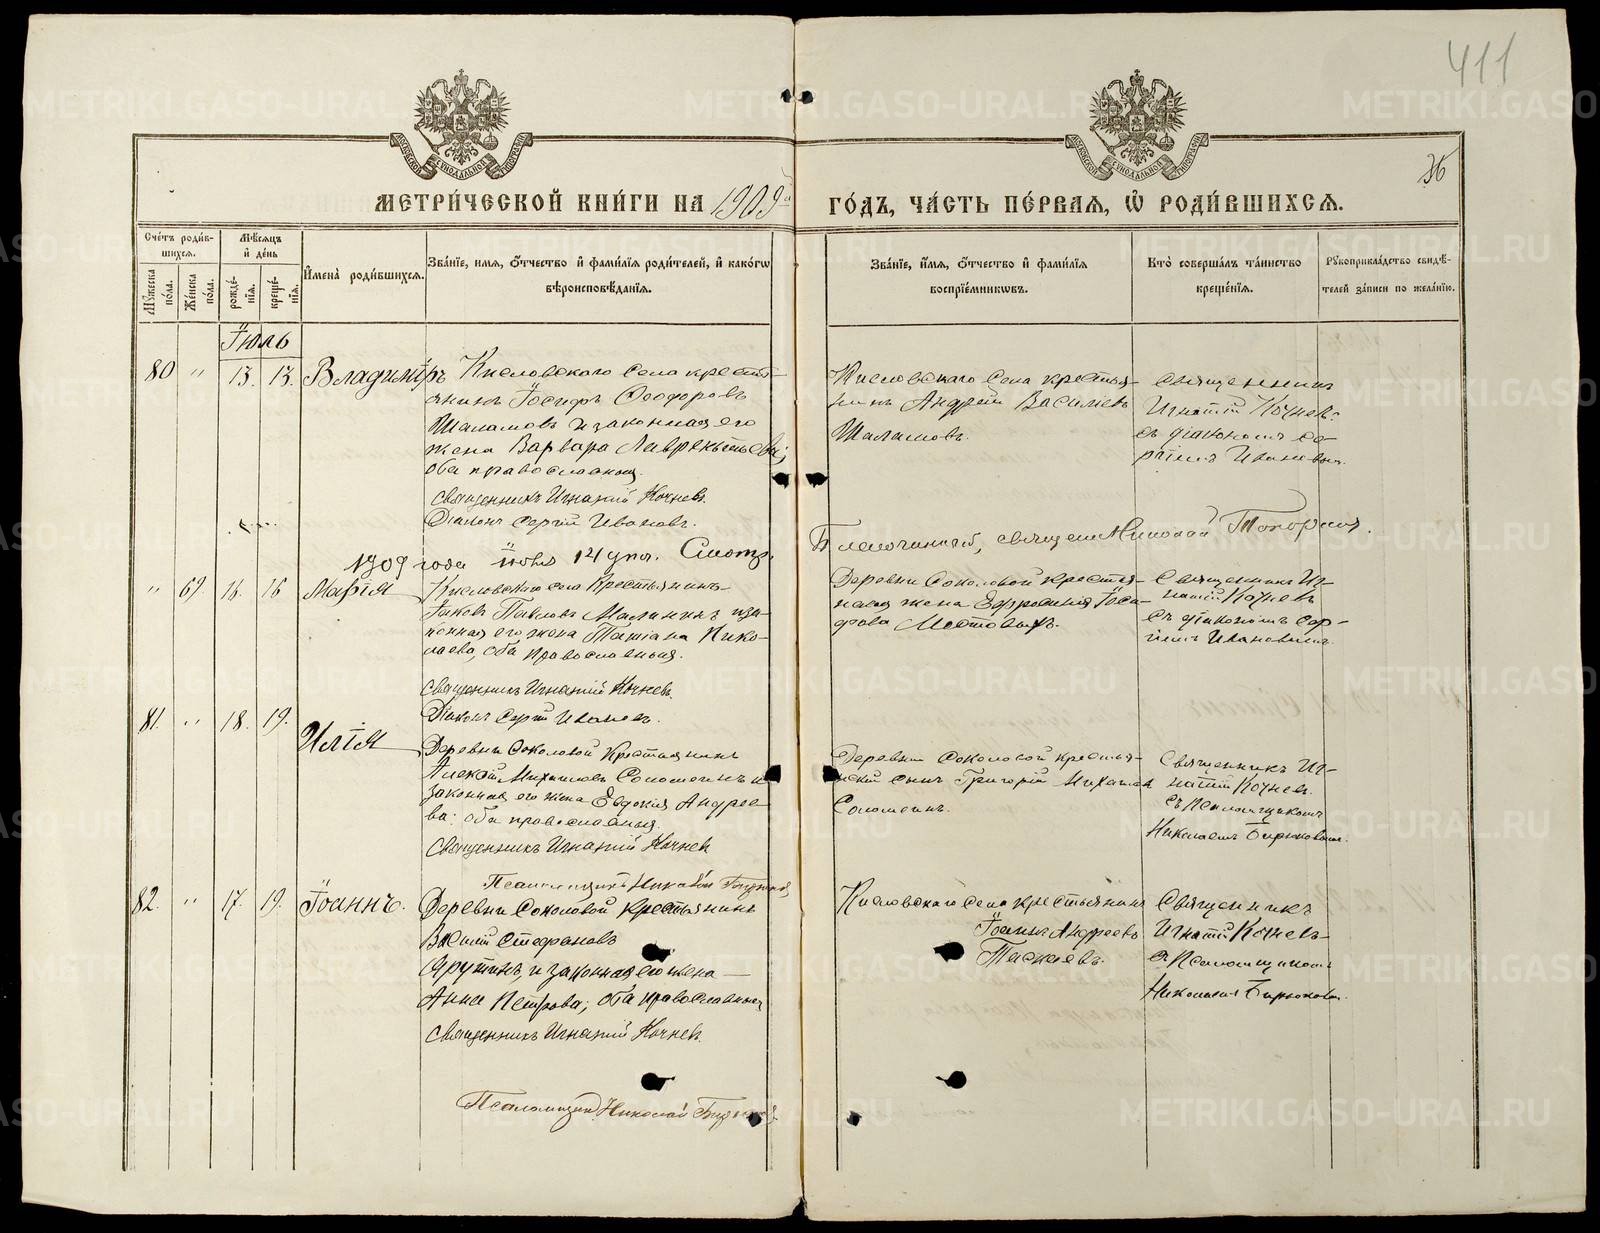 411
36
МЕТРИ́ЧЕСКОЙ КНИ́ГИ НА 1909й ГО́ДЪ, ЧА́СТЬ ПЕ́РВАЯ, Ѡ РОДИ́ВШИХСЯ.
Сче́тъ роди́в-
шихся.
Мѣ́сяцъ
и҆ де́нь
Мꙋ́жеска по́ла.
Же́нска по́ла.
рожде́-нїя.
креще́-нїя.
И҆мена̀ роди́вшихся.
Зва́нїе, и҆мя, ѻ҆́тчество и҆ фами́лїя роди́телей, и҆ како́гѡ
вѣроисповѣ́данїя.
Зва́нїе, и҆́мя, ѻ҆́тчество и҆ фами́лїя
воспрїе́мникѡвъ.
Кто̀ соверша́лъ та́инство
креще́нїя.
Рꙋкоприкла́дство свидѣ́-
телей за́писи по жела́нїю.
Іюль
80 " 13. 13. Владиміръ
Кисловскаго села кресть-
янинъ Іосифъ Ѳеодоровъ
Шаламовъ и законная его
жена Варвара Лаврентьева;
оба православные.
Священникъ Игнатій Кочневъ.
Діаконъ Сергій Ивановъ.
Кисловскаго села кресть-
нинъ Андрей Васильевъ
Шаламовъ.
Священникъ
Игнатій Кочневъ
съ діакономъ Се-
ргіемъ Ивановымъ.
1909 года Іюля 14 дня. Смотр.
Благочинный, священ. Николай Топорковъ.
" 67 16. 16 Марія
Кисловскаго села Крестьянинъ
Іаковъ Павловъ Малининъ и за-
конная его жена Татіана Нико-
лаева, оба православные.
Священникъ Игнатій Кочневъ.
Діаконъ Сергій Ивановъ.
Деревни Соколовой кресть-
нская жена Евфросинія Іоси-
фова Мостовыхъ.
Священникъ Иг-
натій Кочневъ
съ діакономъ Сер-
гіемъ Ивановымъ.
81. " 18. 19. Илія
Деревни Соколовой Крестьянинъ
Алексій Михаиловъ Соломеинъ и
законная его жена Евдокія Андрее-
ва: оба православные.
Священникъ Игнатій Кочневъ
Псаломщикъ Николай Бирюковъ
Деревни Соколовой кресть-
нскій сынъ Григорій Михаиловъ
Соломеинъ.
Священникъ Иг-
натій Кочневъ.
съ Псаломщикомъ
Николаемъ Бирюковымъ.
82. " 17. 19. Іоаннъ.
Деревни Соколовой крестьянинъ
Василій Стефановъ
и законная его жена
Анна Петрова; оба православные
Священникъ Игнатій Кочневъ.
Псаломщикъ Николай Бирюковъ.
Кисловскаго села крестьянинъ
Іоаннъ Андреевъ
Таскаевъ.
Священникъ
Игнатій Кочневъ
съ Псаломщикомъ
Николаемъ Бирюковым.
METRIKI.GASO-URAL.RU